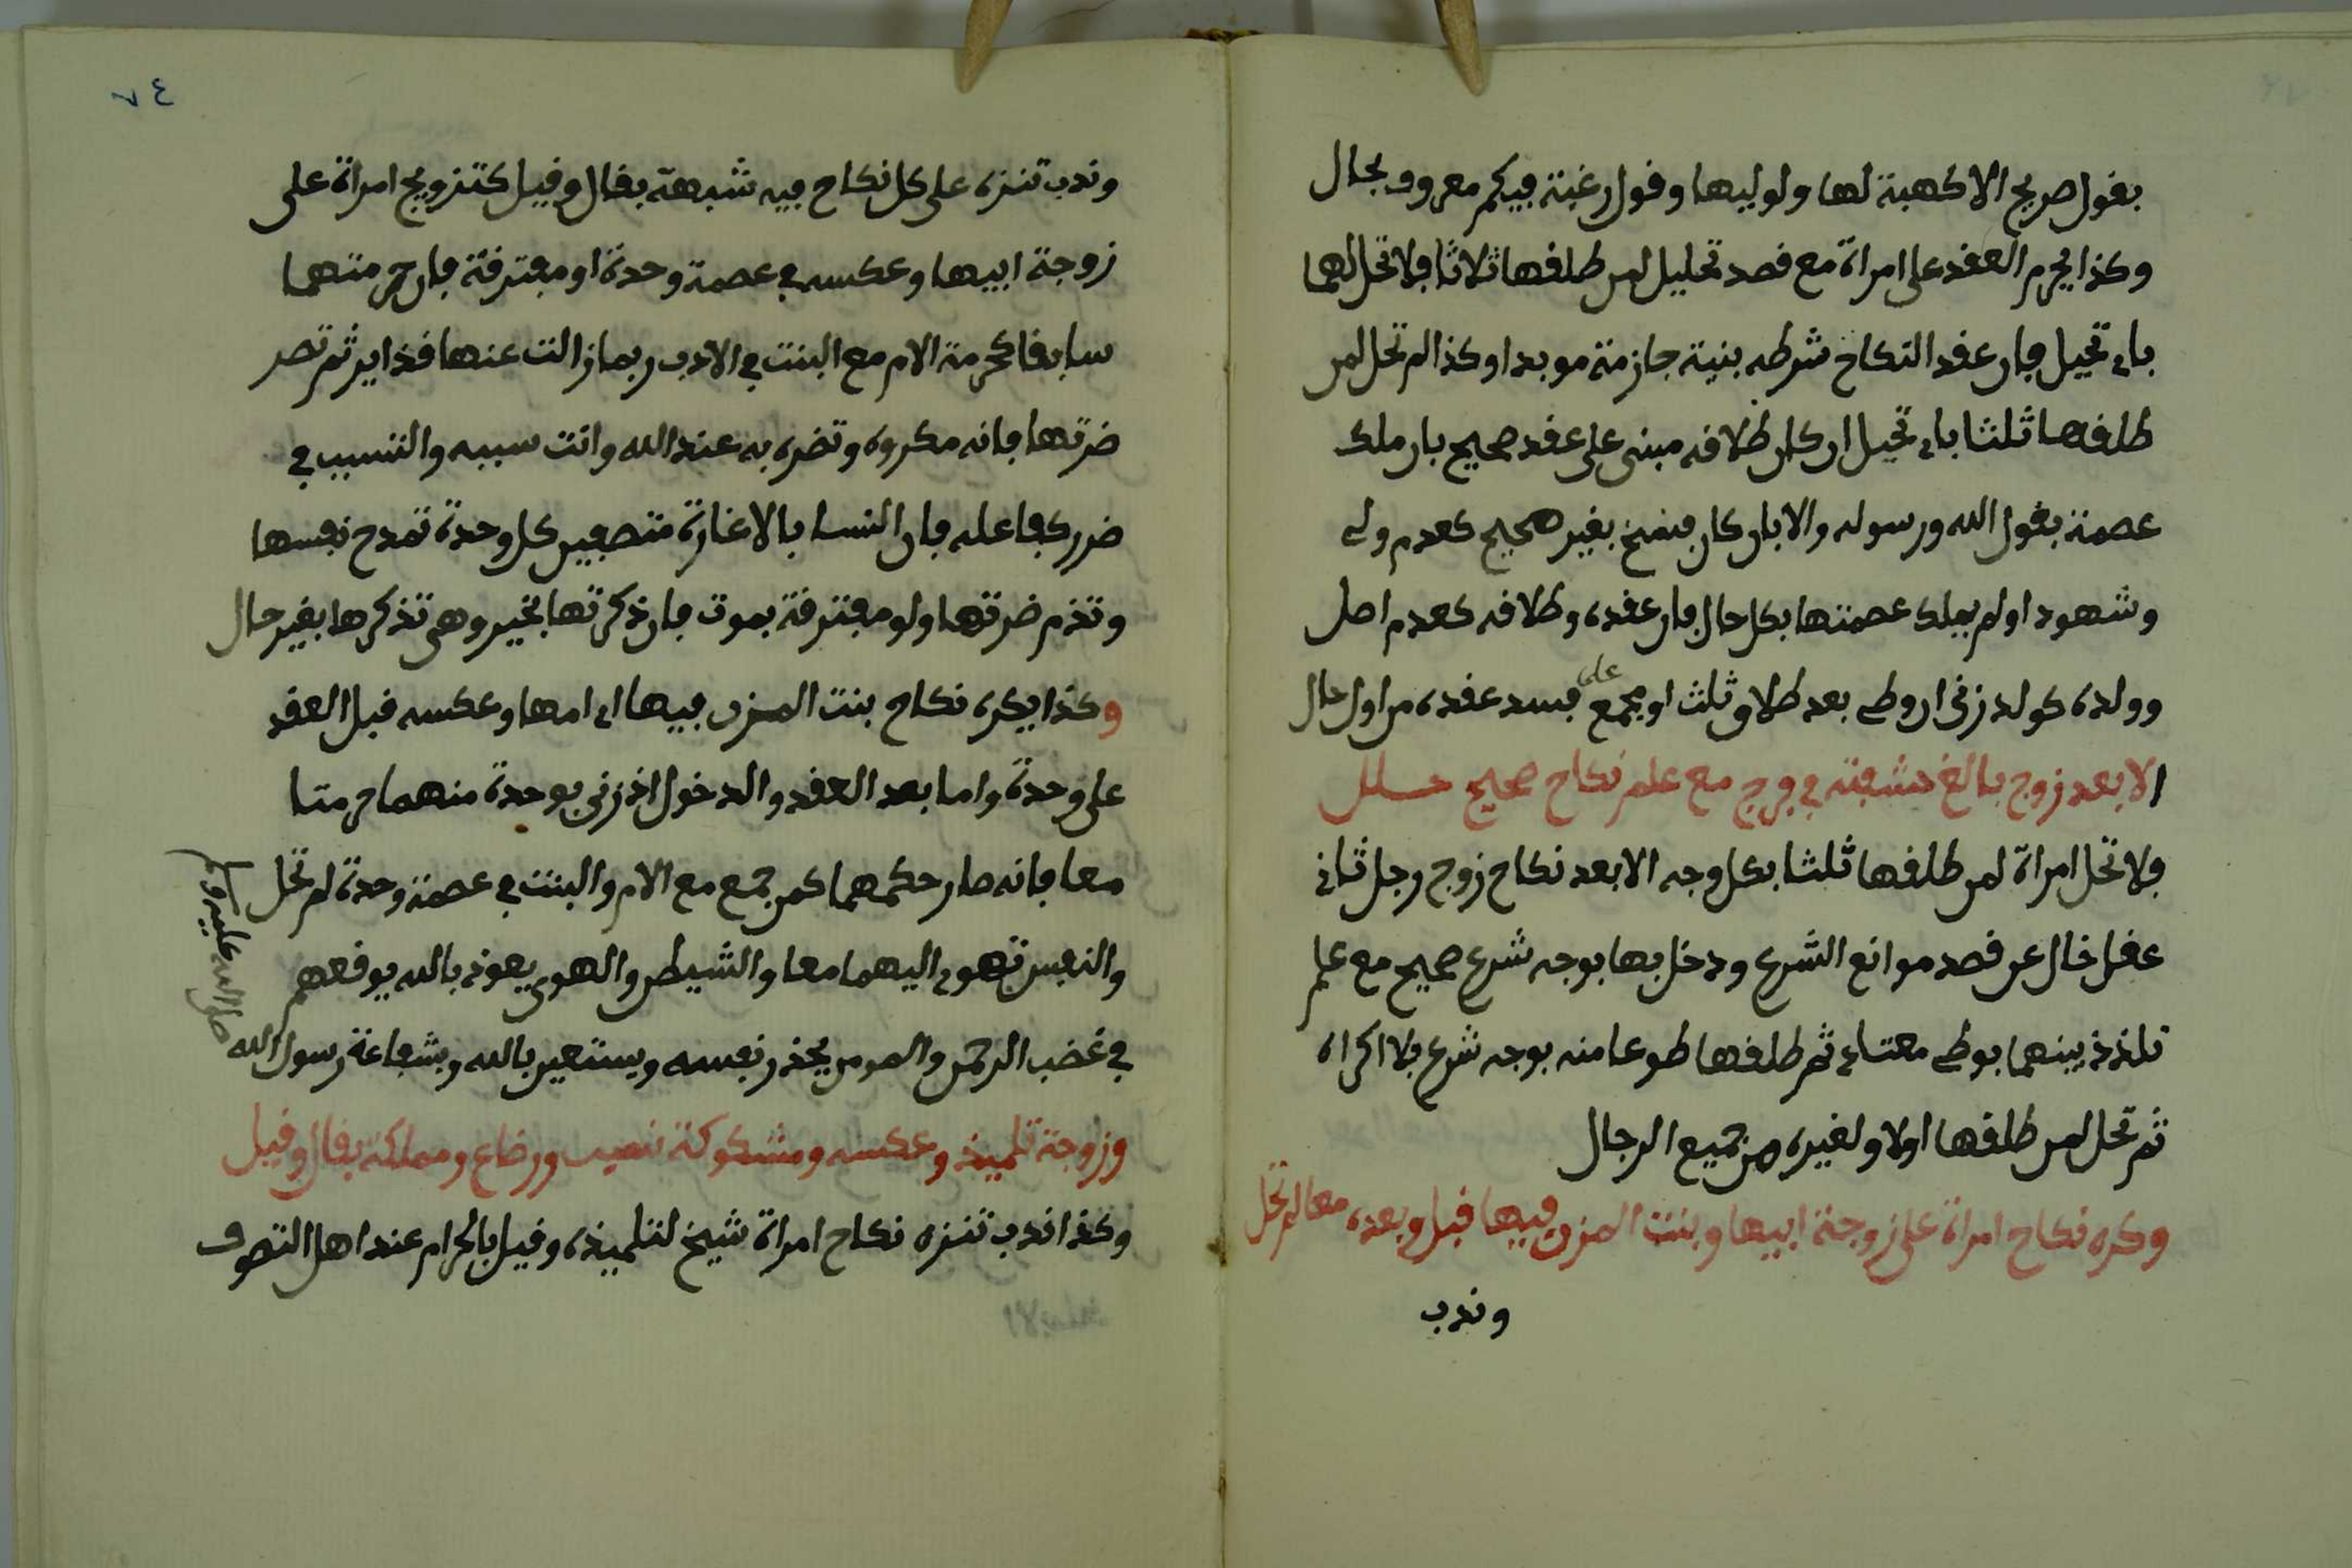 بقول صريح الا كهبة لها ولوليها وقول رغبة فيكم معروف بحال
وكذا يحرم العقد على امراة مع قصد تحليل لمن طلقها ثلاثا فلا تحل لهما
باي تحيل فان عقد النكاح شرطه بنية جازمة موبدا وكذا لم تحل لمن
طلقها ثلثا باي تحيل ان كان طلاقه مبنى على عقد صحيح بان ملك
عصمة بقول الله ورسوله والا بان كان فسخ بغير صحيح كعدم ولي
وشهود او لم يملك عصمتها بكل حال فان عقده وطلاقه كعدم اصل
وولده كولد زنى ان وطي بعد طلاق ثلث او مجمع على فسد عقده من اول حال
الا بعد زوج بالغ حشفته في فرج مع علم نكاح صحيح حلل
فلا تحل امراة لمن طلقها ثلثا بكل وجه الا بعد نكاح زوج رجل ثاني
عقل خال عن قصد موانع الشرع ودخل بها بوجه شرع صحيح مع علم
تلذذ بينهما بوطي معتاي ثم طلقها طوعا منه بوجه شرع بلا اكراه
ثم تحل لمن طلقها اولا ولغيره من جميع الرجال
وكره نكاح امراة على زوجة ابيها وبنت المزن فيها قبل وبعده معا لم تحل
وندب
٧٤
وندب تنزه على كل نكاح فيه شبهة بقال وقيل كتزويج امراة على
زوجة ابيها وعكسه في عصمة وحدة او مفترقة فان حرمتهما
سابقا كحرمة الام مع البنت في الادب ربما زالت عنها فذاير ثم تصر
ضرتها فانه مكروه وتضره به عند الله وانت سببه والتسبب في
ضرر كفاعله فان النسا بالاغارة متصفين كل وحدة تمدح نفسها
وتذم ضرتها ولو مفترقة بموت فان ذكرتها بخير وهي تذكرها بغير حال
وكذا يكره نكاح بنت المزن فيها اي امها وعكسه قبل العقد
على وحدة واما بعد العقد والدخول اذ زنى بوحدة منهما حرمتا
معا فانه صار حكمهما كمن جمع مع الام والبنت في عصمة وحدة لم تحل
والنفس تهوى اليهما معا والشيطن والهوى يعوذ بالله يوقعهم
في غضب الرحمن والمومن يحذر نفسه ويستعين بالله وبشفاعة رسول الله
صلى الله عليه وسلم
وزوجة تلميذ وعكسه ومشكوكة نصيب ورضاع ومملكة بقال وقيل
وكذا ندب تنزه نكاح امراة شيخ لتلميذه وقيل بالحرام عند اهل التصوف